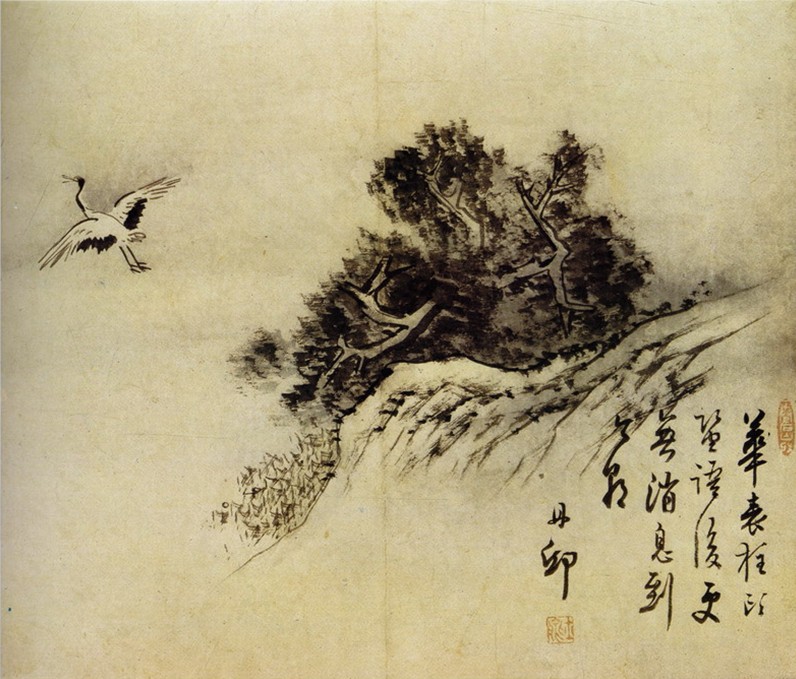 華表柱頭
留語後更
無消息到
今朝
丹邱